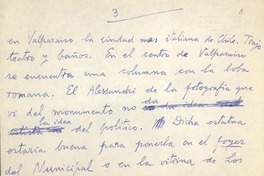 3
1
en Valparaiso, la ciudad mas italiana de Chile. Trajo
teatro y baños. En el centro de Valparaiso
se encuentra una columna con la loba
romana. El Alessandri de la fotografia que
vi del monumento no da idea
la idea del politico. Dicha estatua
estaria buena para ponerla en el foyer
del Municipal o en la vitrina de Los